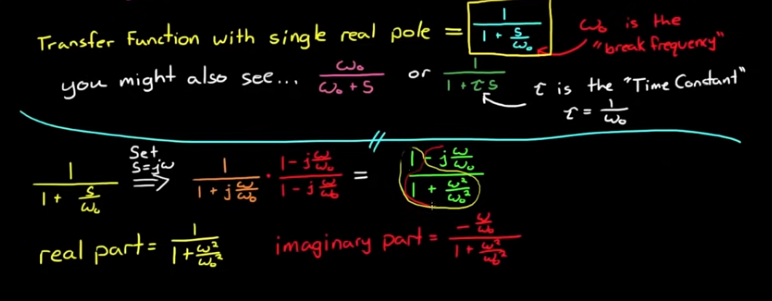 Transfer Function with single real pole = 1/(1 + s/ω₀) ω₀ is the "break frequency"
you might also see... ω₀/(ω₀ + s) or 1/(1 + τs) τ is the "Time Constant"
τ = 1/ω₀
1/(1 + s/ω₀) Set s=jω ⇒ 1/(1 + j ω/ω₀) · (1 - j ω/ω₀)/(1 - j ω/ω₀) = (1 - j ω/ω₀)/(1 + ω²/ω₀²)
real part = 1/(1 + ω²/ω₀²) imaginary part = (-ω/ω₀)/(1 + ω²/ω₀²)